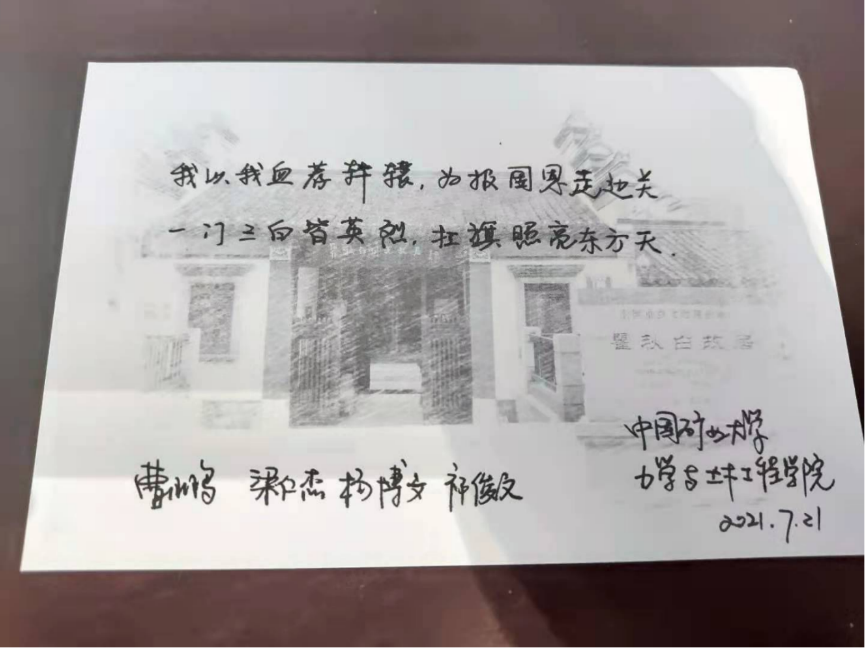 我以我血荐轩辕，为报国恩走边关
一门三白皆英烈，扛旗照亮东方天.
瞿秋白故居
中国矿业大学
曹 鹏 梁仁杰 杨博文 祁俊文
力学与土木工程学院
2021.7.21